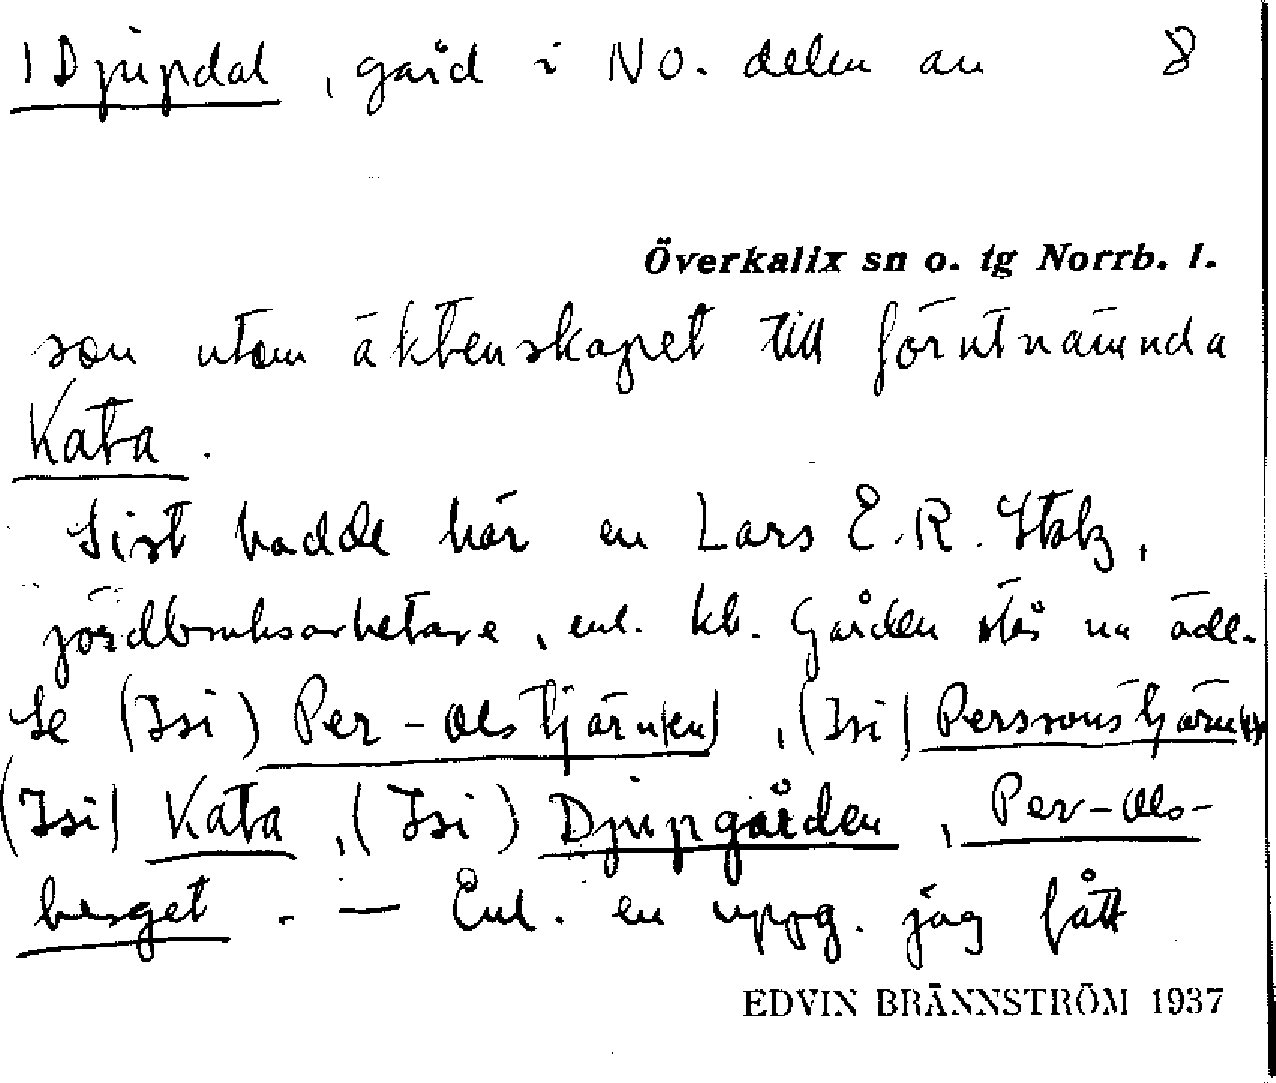 1 Djupdal, gård i NO. delen av 8
Överkalix sn o. tg Norrb. l.
son utom äktenskapet till förutnämnda
Kata.
Sist hadde här en Lars E. R. Stolz,
jordbruksarbetare, enl. kb. Gården står nu öde.
Se (Isi) Per-Olstjärn(en), (Isi) Perssonstjärn(en)
(Isi) Kata, (Isi) Djupgården, Per-Ols-
berget. — Enl. en uppg. jag fått
EDVIN BRÄNNSTRÖM 1937